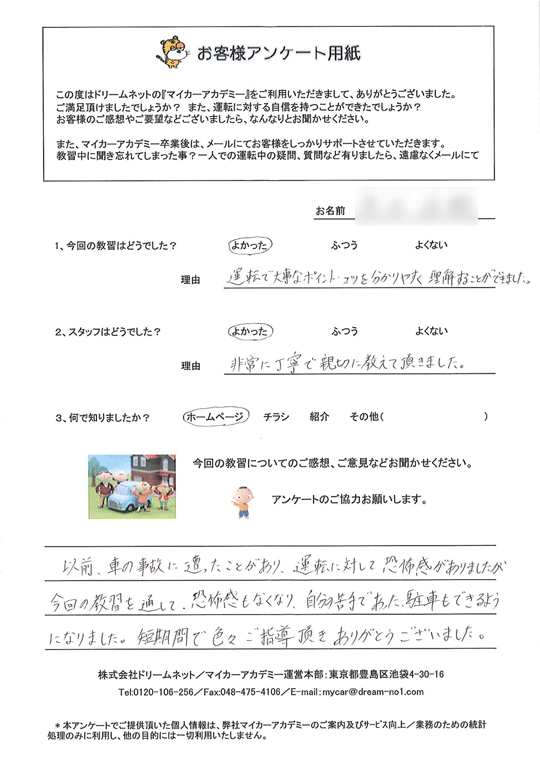 お客様アンケート用紙
この度はドリームネットの『マイカーアカデミー』をご利用いただきまして、ありがとうございました。
ご満足頂けましたでしょうか？ また、運転に対する自信を持つことができたでしょうか？
お客様のご感想やご要望などございましたら、なんなりとお聞かせください。
また、マイカーアカデミー卒業後は、メールにてお客様をしっかりサポートさせていただきます。
教習中に聞き忘れてしまった事？一人での運転中の疑問、質問など有りましたら、遠慮なくメールにて
お名前
1、今回の教習はどうでした？ よかった ふつう よくない
理由 運転で大事なポイント・コツを分かりやすく理解することができました。
2、スタッフはどうでした？ よかった ふつう よくない
理由 非常に丁寧で親切に教えて頂きました。
3、何で知りましたか？ ホームページ チラシ 紹介 その他( )
今回の教習についてのご感想、ご意見などお聞かせください。
アンケートのご協力お願いします。
以前、車の事故に遭ったことがあり、運転に対して恐怖感がありましたが
今回の教習を通して、恐怖感もなくなり、自分の苦手であった、駐車もできるよう
になりました。短期間で色々ご指導頂きありがとうございました。
株式会社ドリームネット／マイカーアカデミー運営本部：東京都豊島区池袋4-30-16
Tel:0120-106-256／Fax:048-475-4106／E-mail：mycar@dream-no1.com
＊本アンケートでご提供頂いた個人情報は、弊社マイカーアカデミーのご案内及びサービス向上／業務のための統計
処理のみに利用し、他の目的には一切利用いたしません。